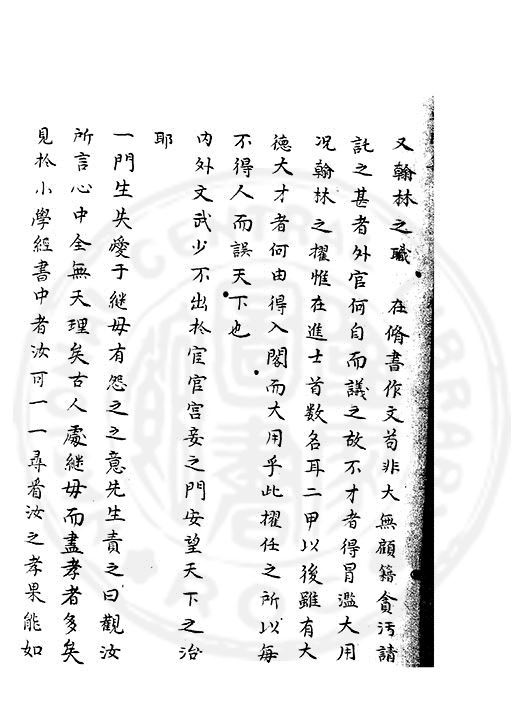 又翰林之職　在脩書作文苟非大　無顧籍貪汚請
託之甚者外官何自而議之故不才者得冒濫大用
况翰林之擢惟在進士首数名耳二甲以後雖有大
德大才者何由得入閣而大用乎此擢任之所以每
不得人而誤天下也
内外文武少不出於宦官宮妾之門安望天下之治
耶
一門生失愛于継母有怨之之意先生責之曰觀汝
所言心中全無天理矣古人處継母而盡孝者多矣
見於小學經書中者汝可一一尋看汝之孝果能如